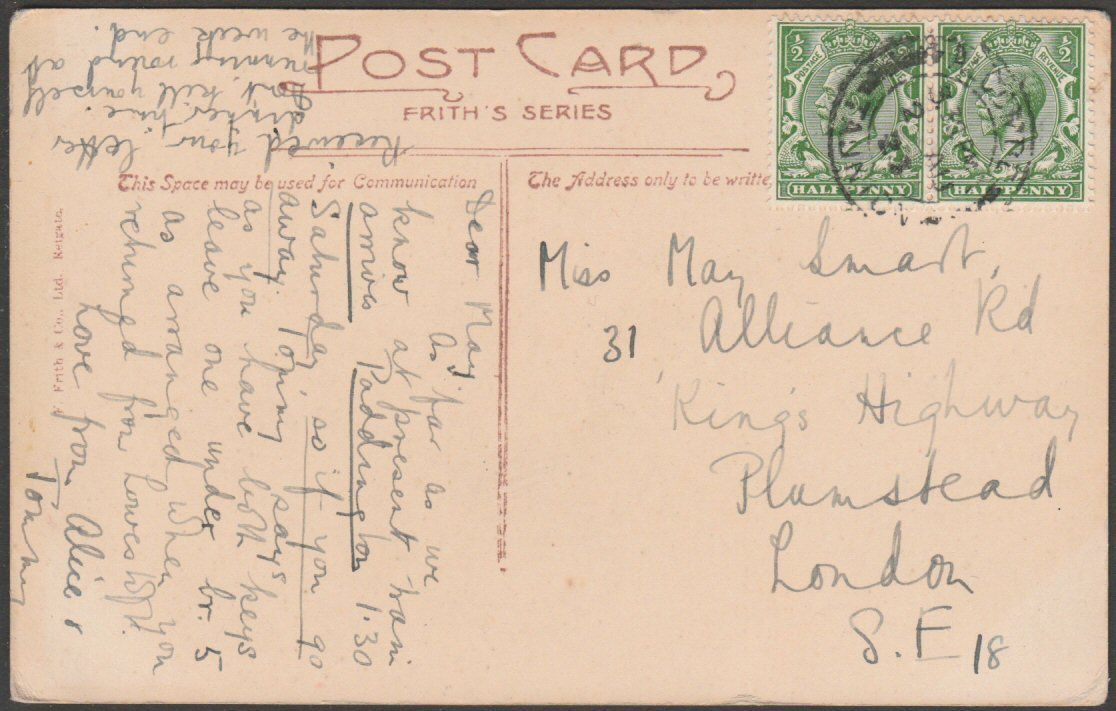 POST CARD
FRITH'S SERIES
This Space may be used for Communication
The Address only to be writte
F. Frith & Co., Ltd. Reigate.
½ ½
POSTAGE REVENUE
HALFPENNY HALFPENNY
Miss May Smart,
31 Alliance Rd
Kings Highway
Plumstead
London
S. E 18
Dear May,
As far as we
know at present train
arrives Paddington 1.30
Saturday, so if you go
away. Tommy says
as you have both keys
leave one under br. 5
as arranged when you
returned from Lowestoft.
Love from Alice &
Tommy
Received your letter
dinner time.
Dont kill yourself
running round at
the week end.